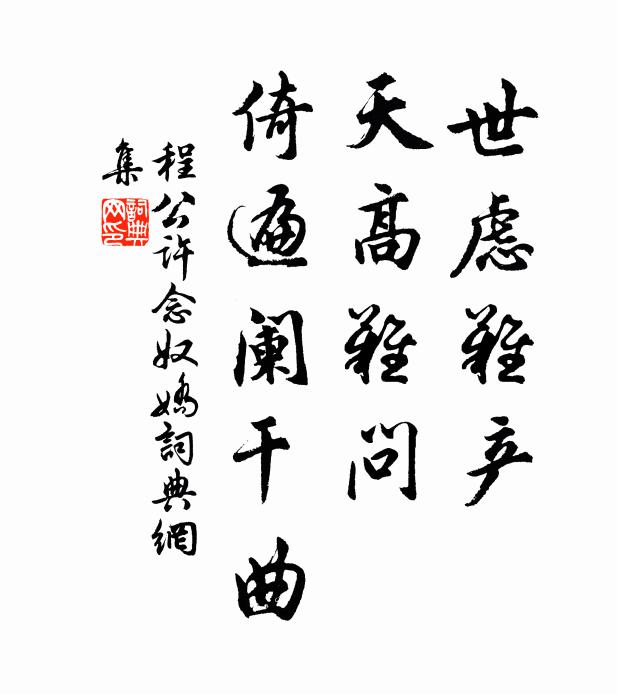 世虑难产
天高难问
倚遍阑干曲
程公许念奴娇詞典網
集
詞典网印